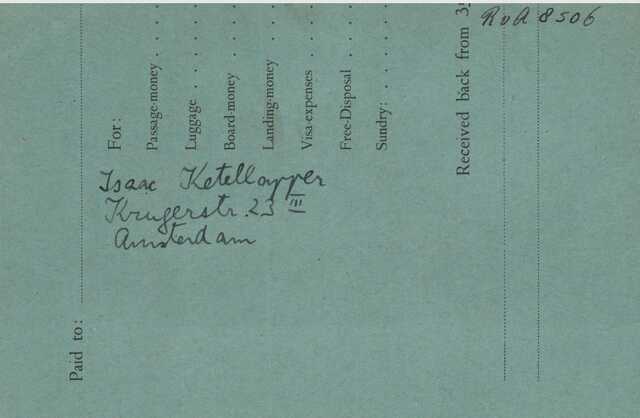 RvA 8506
Paid to:
For:
Passage-money
Luggage
Board-money
Landing-money
Visa-expenses
Free-Disposal
Sundry:
Received back from
Isaac Ketellapper
Krugerstr. 23 III
Amsterdam